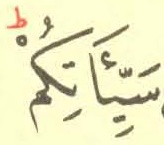 سَيِّئَاتِكُمْ ۖ ط